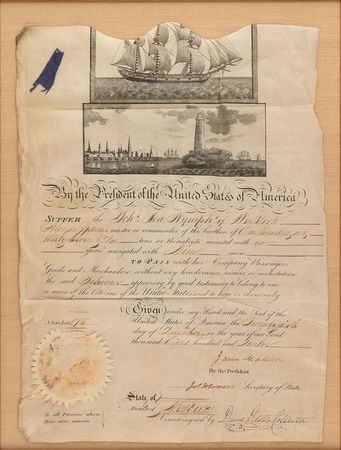 By the President of the United States of America
SUFFER the Schr. Sea Nymph of New York
master or commander of the burthen of One hundred and
tons or thereabouts mounted with no
guns navigated with men
TO PASS with her Company Passengers
Goods and Merchandize without any hinderance seizure or molestation
the said Schooner appearing by good testimony to belong to one
or more of the Citizens of the United States and to him or them only
Given under my Hand and the Seal of the
United States of America the
day of December in the year of our Lord
thousand Eight hundred and
James Madison
By the President
Secretary of State
Number
State of
District of New York
Countersigned by David Gelston Collector
To all Persons whom
these may concern